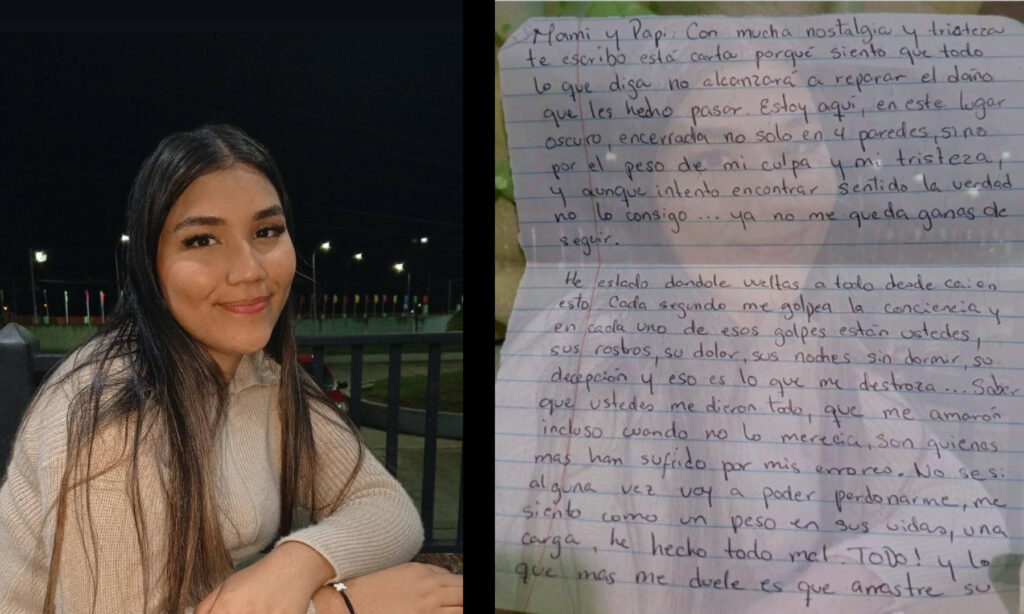 Mami y Papi: Con mucha nostalgia y tristeza
te escribo está carta porqué siento que todo
lo que diga no alcanzará a reparar el daño
que les hecho pasar. Estoy aqui, en este lugar
oscuro, encerrada no solo en 4 paredes, sino
por el peso de mi culpa y mi tristeza,
y aunque intento encontrar sentido la verdad
no lo consigo... ya no me queda ganas de
seguir.
He estado dandole vueltas a todo desde cai en
esto. Cada segundo me golpea la conciencia y
en cada uno de esos golpes están ustedes,
sus rostros, su dolor, sus noches sin dormir, su
decepción y eso es lo que me destroza... Saber
que ustedes me dieron todo, que me amarón
incluso cuando no lo merecia, son quienes
mas han sufrido por mis errores. No se si
alguna vez voy a poder perdonarme, me
siento como un peso en sus vidas, una
carga, he hecho todo mal. TODO! y lo
que mas me duele es que arrastre su